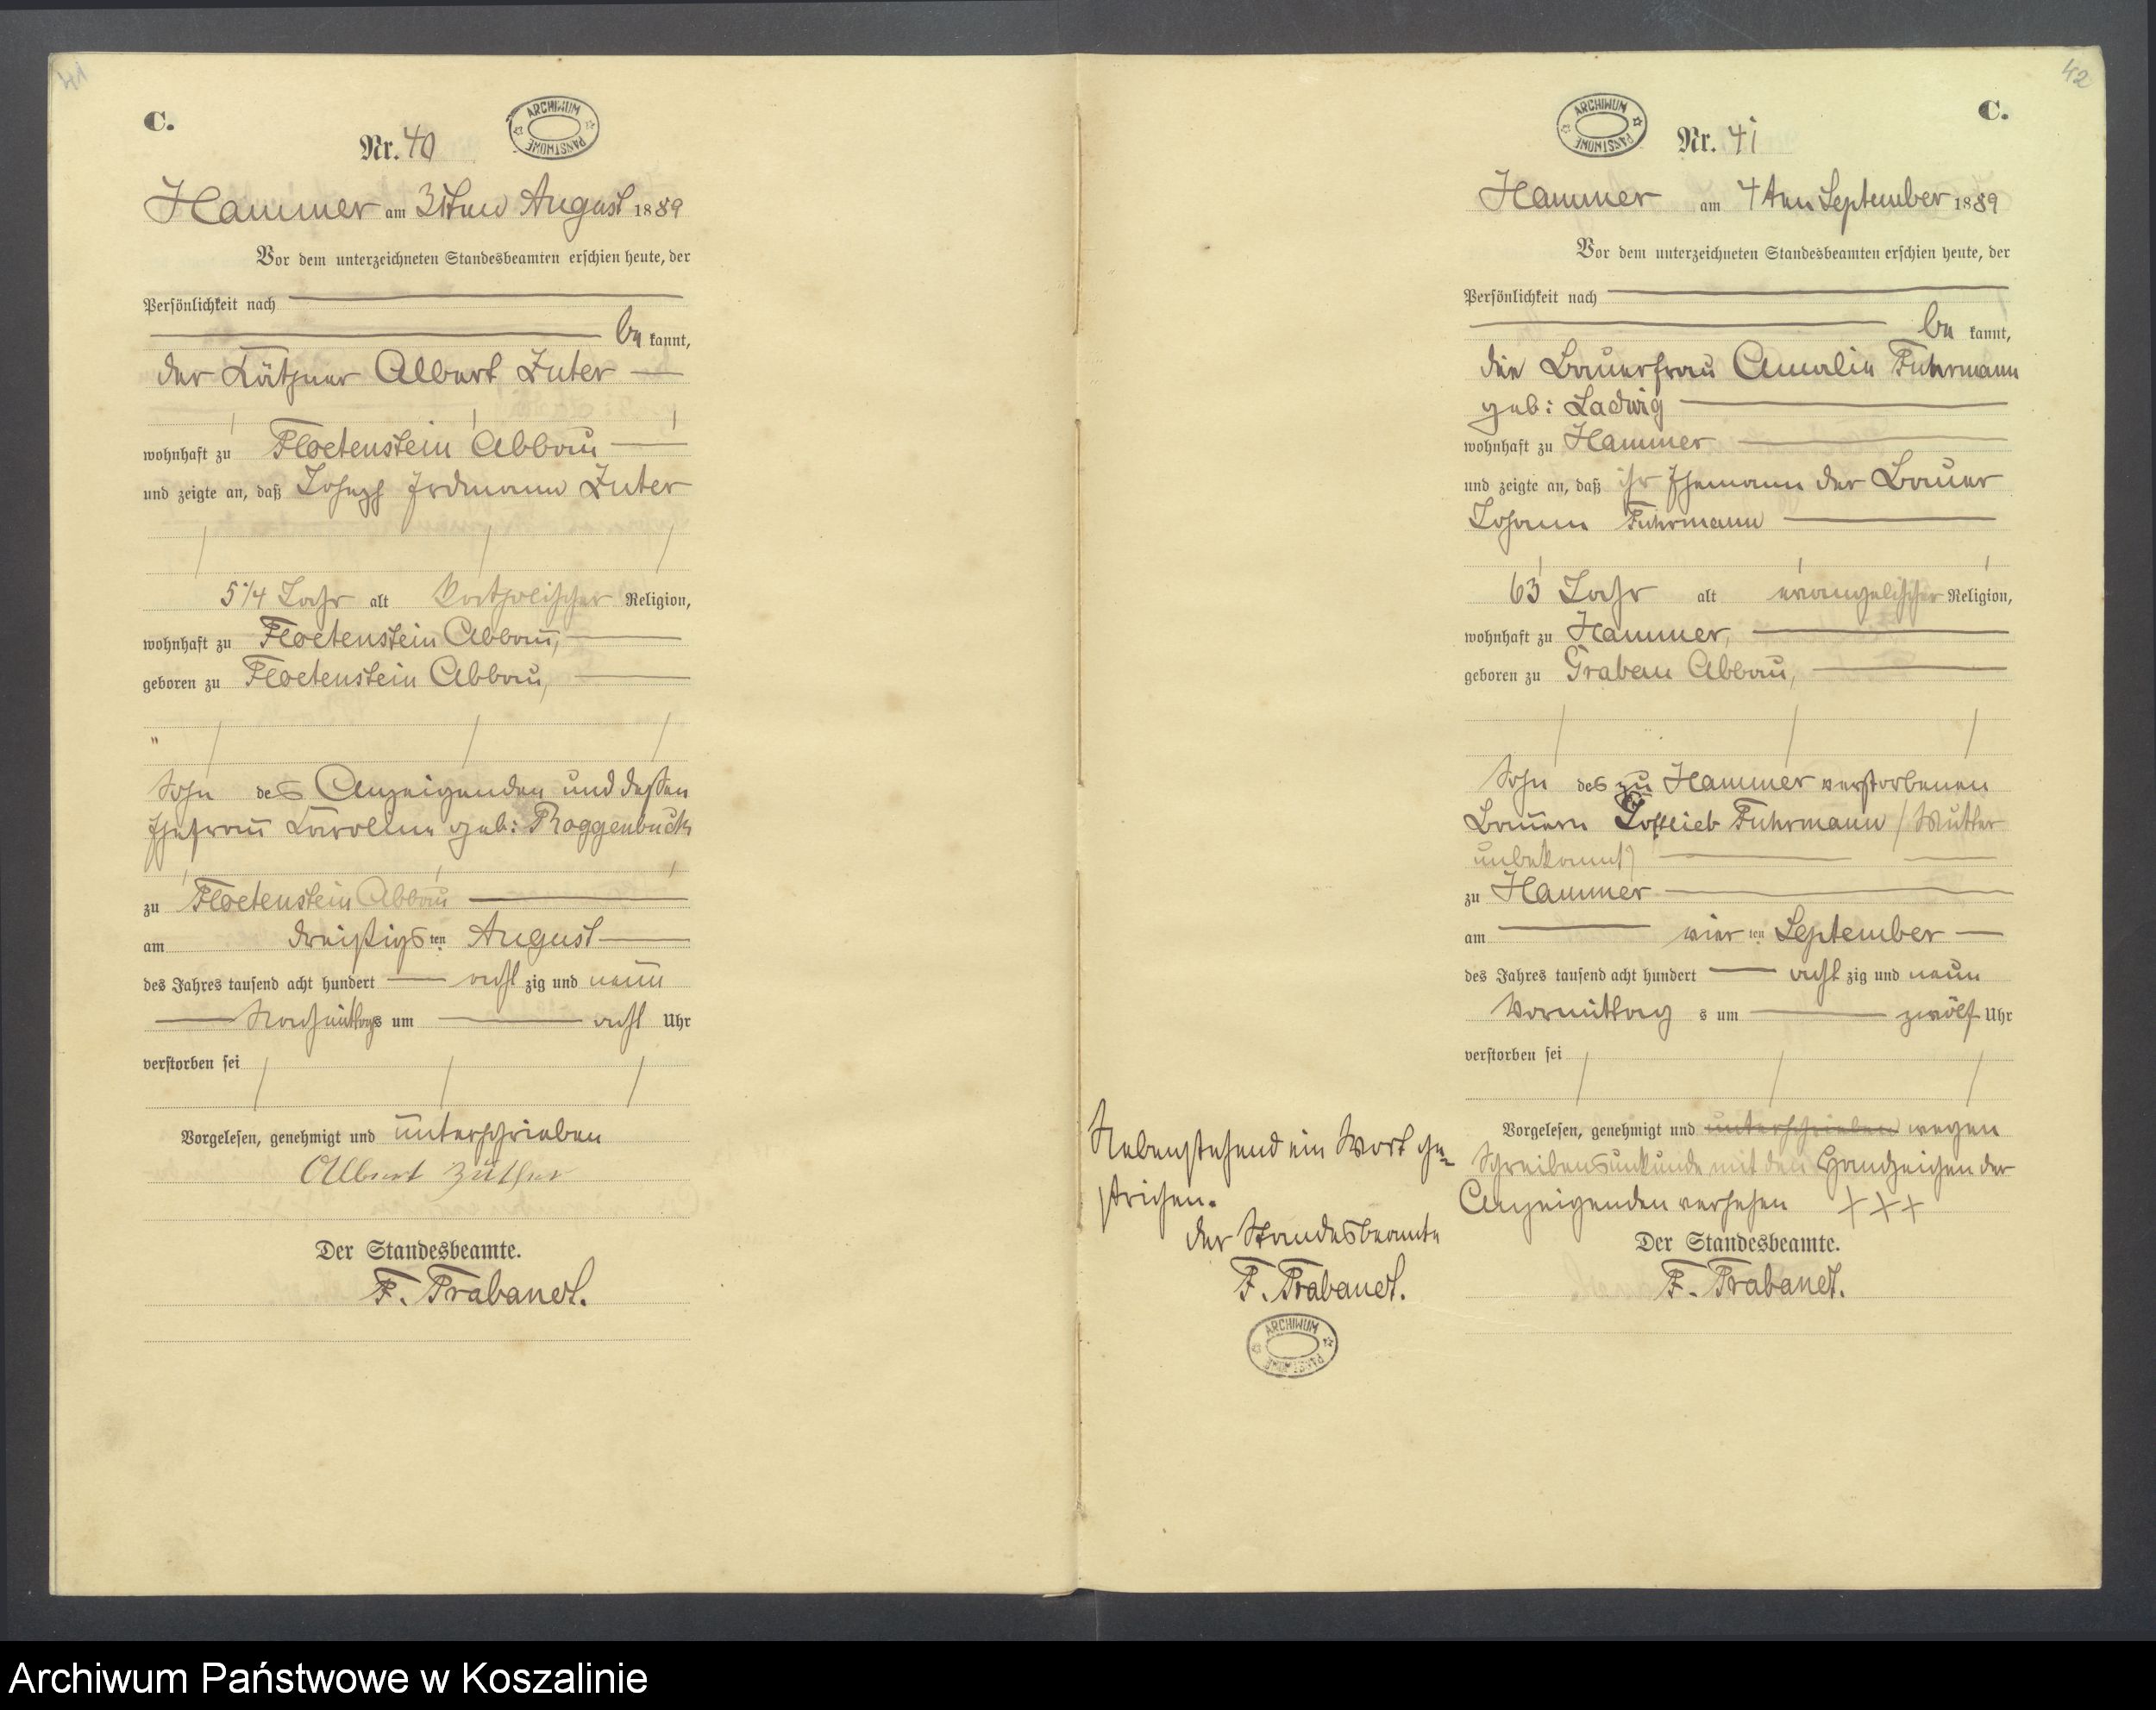 41
C.
ARCHIWUM PAŃSTWOWE
Nr. 40
Hammer am 31ten August 1889
Vor dem unterzeichneten Standesbeamten erschien heute, der
Persönlichkeit nach
be kannt,
der Käthner Albert Zuter
wohnhaft zu Floetenstein Abbau
und zeigte an, daß Joseph Erdmann Zuter
5 1/4 Jahr alt katholischer Religion,
wohnhaft zu Floetenstein Abbau,
geboren zu Floetenstein Abbau,
Sohn des Anzeigenden und dessen
Ehefrau Karoline geb: Roggenbuck
zu Floetenstein Abbau
am dreißigs ten August
des Jahres tausend acht hundert acht zig und neun
Nachmittags um acht Uhr
verstorben sei
Vorgelesen, genehmigt und unterschrieben
Albert Züther
Der Standesbeamte.
F. Trabandt.
42
C.
ARCHIWUM PAŃSTWOWE
Nr. 41
Hammer am 4ten September 1889
Vor dem unterzeichneten Standesbeamten erschien heute, der
Persönlichkeit nach
be kannt,
die Bauerfrau Amalie Fuhrmann
geb: Ladwig
wohnhaft zu Hammer
und zeigte an, daß ihr Ehemann der Bauer
Johann Fuhrmann
63 Jahr alt evangelischer Religion,
wohnhaft zu Hammer,
geboren zu Grabau Abbau,
Sohn des zu Hammer verstorbenen
Bauern Gottlieb Fuhrmann (Mutter
unbekannt)
zu Hammer
am vier ten September
des Jahres tausend acht hundert acht zig und neun
Vormittag s um zwölf Uhr
verstorben sei
Vorgelesen, genehmigt und unterschrieben wegen
Schreibensunkunde mit den Handzeichen der
Anzeigenden versehen + + +
Der Standesbeamte.
F. Trabandt.
Nebenstehend ein Wort ge-
strichen.
Der Standesbeamte
F. Trabandt.
ARCHIWUM PAŃSTWOWE
Archiwum Państwowe w Koszalinie